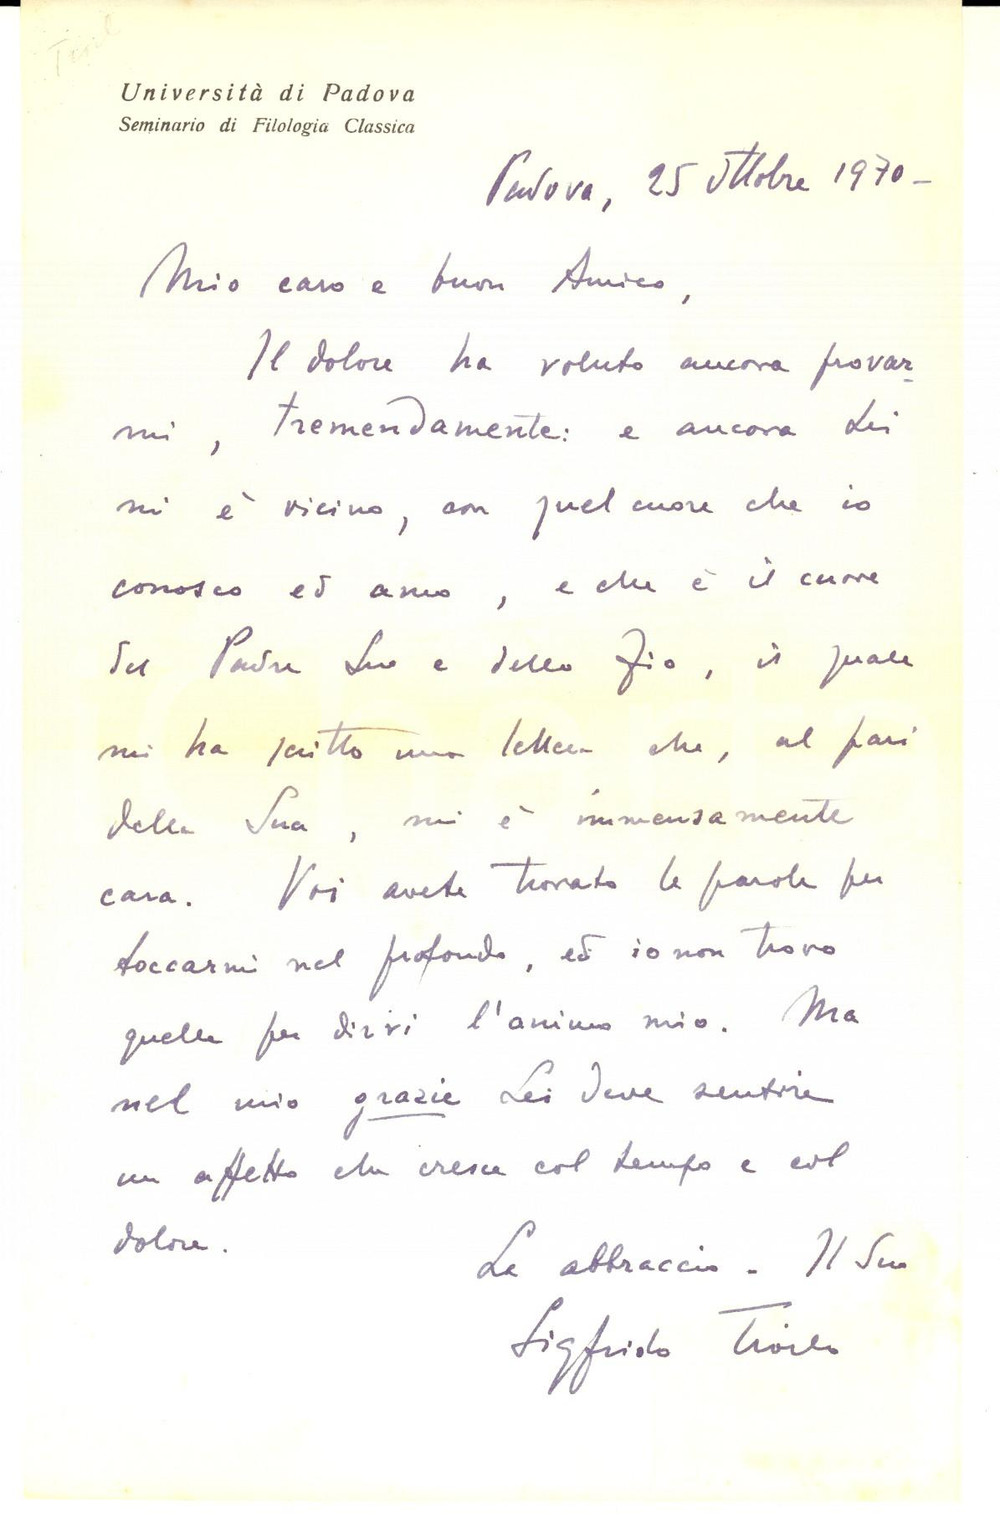 Università di Padova
Seminario di Filologia Classica
Padova, 25 Ottobre 1970 –
Mio caro e buon Amico,
Il dolore ha voluto ancora provar-
mi, tremendamente: e ancora Lei
mi è vicino, con quel cuore che io
conosco ed amo, e che è il cuore
del Padre Suo e dello Zio, il quale
mi ha scritto una lettera che, al pari
della Sua, mi è immensamente
cara. Voi avete trovato le parole per
toccarmi nel profondo, ed io non trovo
quelle per dirvi l'animo mio. Ma
nel mio grazie Lei deve sentire
un affetto che cresce col tempo e col
dolore.
La abbraccio – Il Suo
Sigfrido Troilo